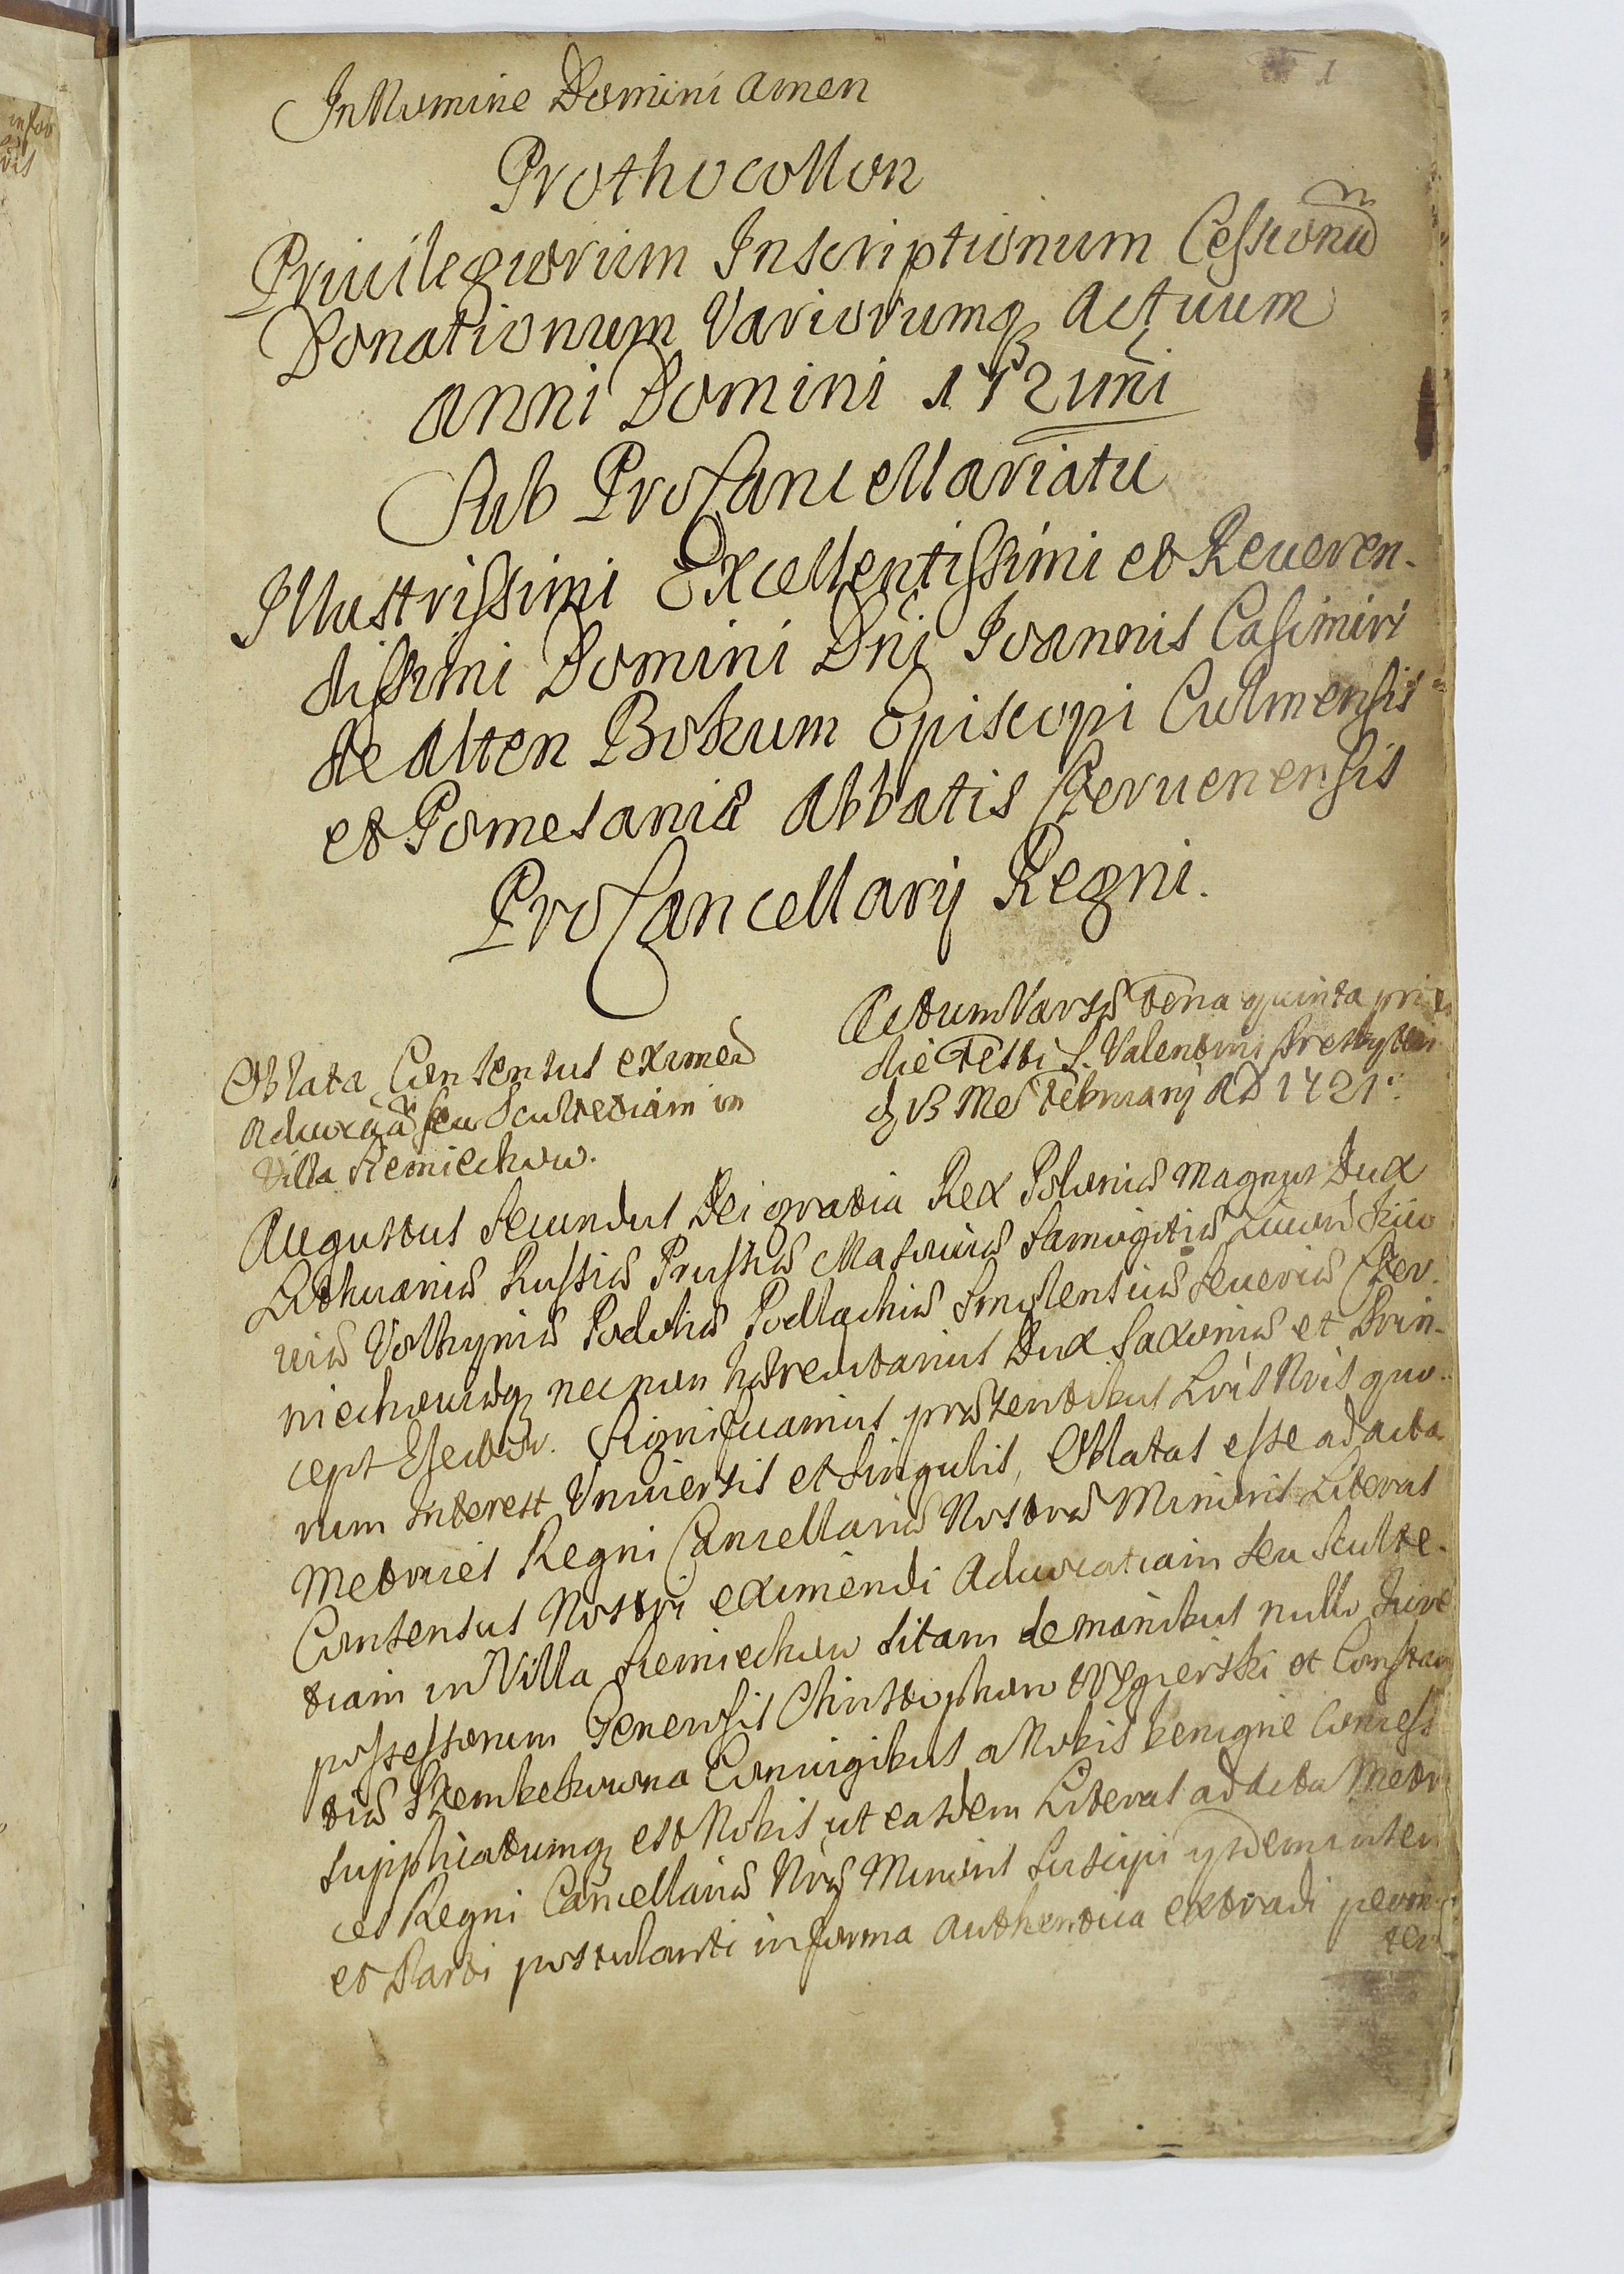 1
In Nomine Domini amen
Prothocollon
Priuilegiorum Inscriptionum Cessionũ
Donationum Variorumq̃ Actuum
anni Domini 172 uñi
Sub ProCancellariatu
Illustrissimi Excellentissimi et Reueren-
dissimi Domini Dñi Ioannis Casimiri
de Alten Bokum Episcopi Culmensis
et Pomesaniæ Abbatis Czeruenensis
ProCancellarij Regni.
Actum Varsæ feria quinta pri
die Festi S. Valentini Presbyteri
d. 13 Me Februarij AD 1721.
Oblata Consensus eximed
Aduocãã seu Scultetiam in
Villa Siemiechow.
Augustus Secundus Dei gratia Rex Poloniæ Magnus Dux
Lithuaniæ Russiæ Prussiæ Masouiæ Samogitiæ Liuoæ Kiio
uiæ Volhyniæ Podoliæ Podlachiæ Smolensciæ Seueriæ Czer-
niechouiæq̃ nec non hæreditarius Dux Saxoniæ et Prin-
ceps Elector. Significamus præsentibus Lris Nris quo-
rum interest Vniuersis et singulis, Oblatas esse ad acta
Metrices Regni Cancellariæ Nostræ Minoris Literas
Consensus Nostri eximendi Aduocatiam seu Sculte-
tiam in Villa Siemiechow sitam de manibus nullo Iure
possessorum Generosis Christophoro Węgierski et Constan
tiæ Szembekowna Coniugibus a Nobis benigne Concess
supplicatumq̃ est Nobis ut easdem Literas ad acta Metri
ces Regni Cancellariæ Nræ Minoris suscipi ijsdem inseri
et Parti postulanti in forma authentica extradi permit